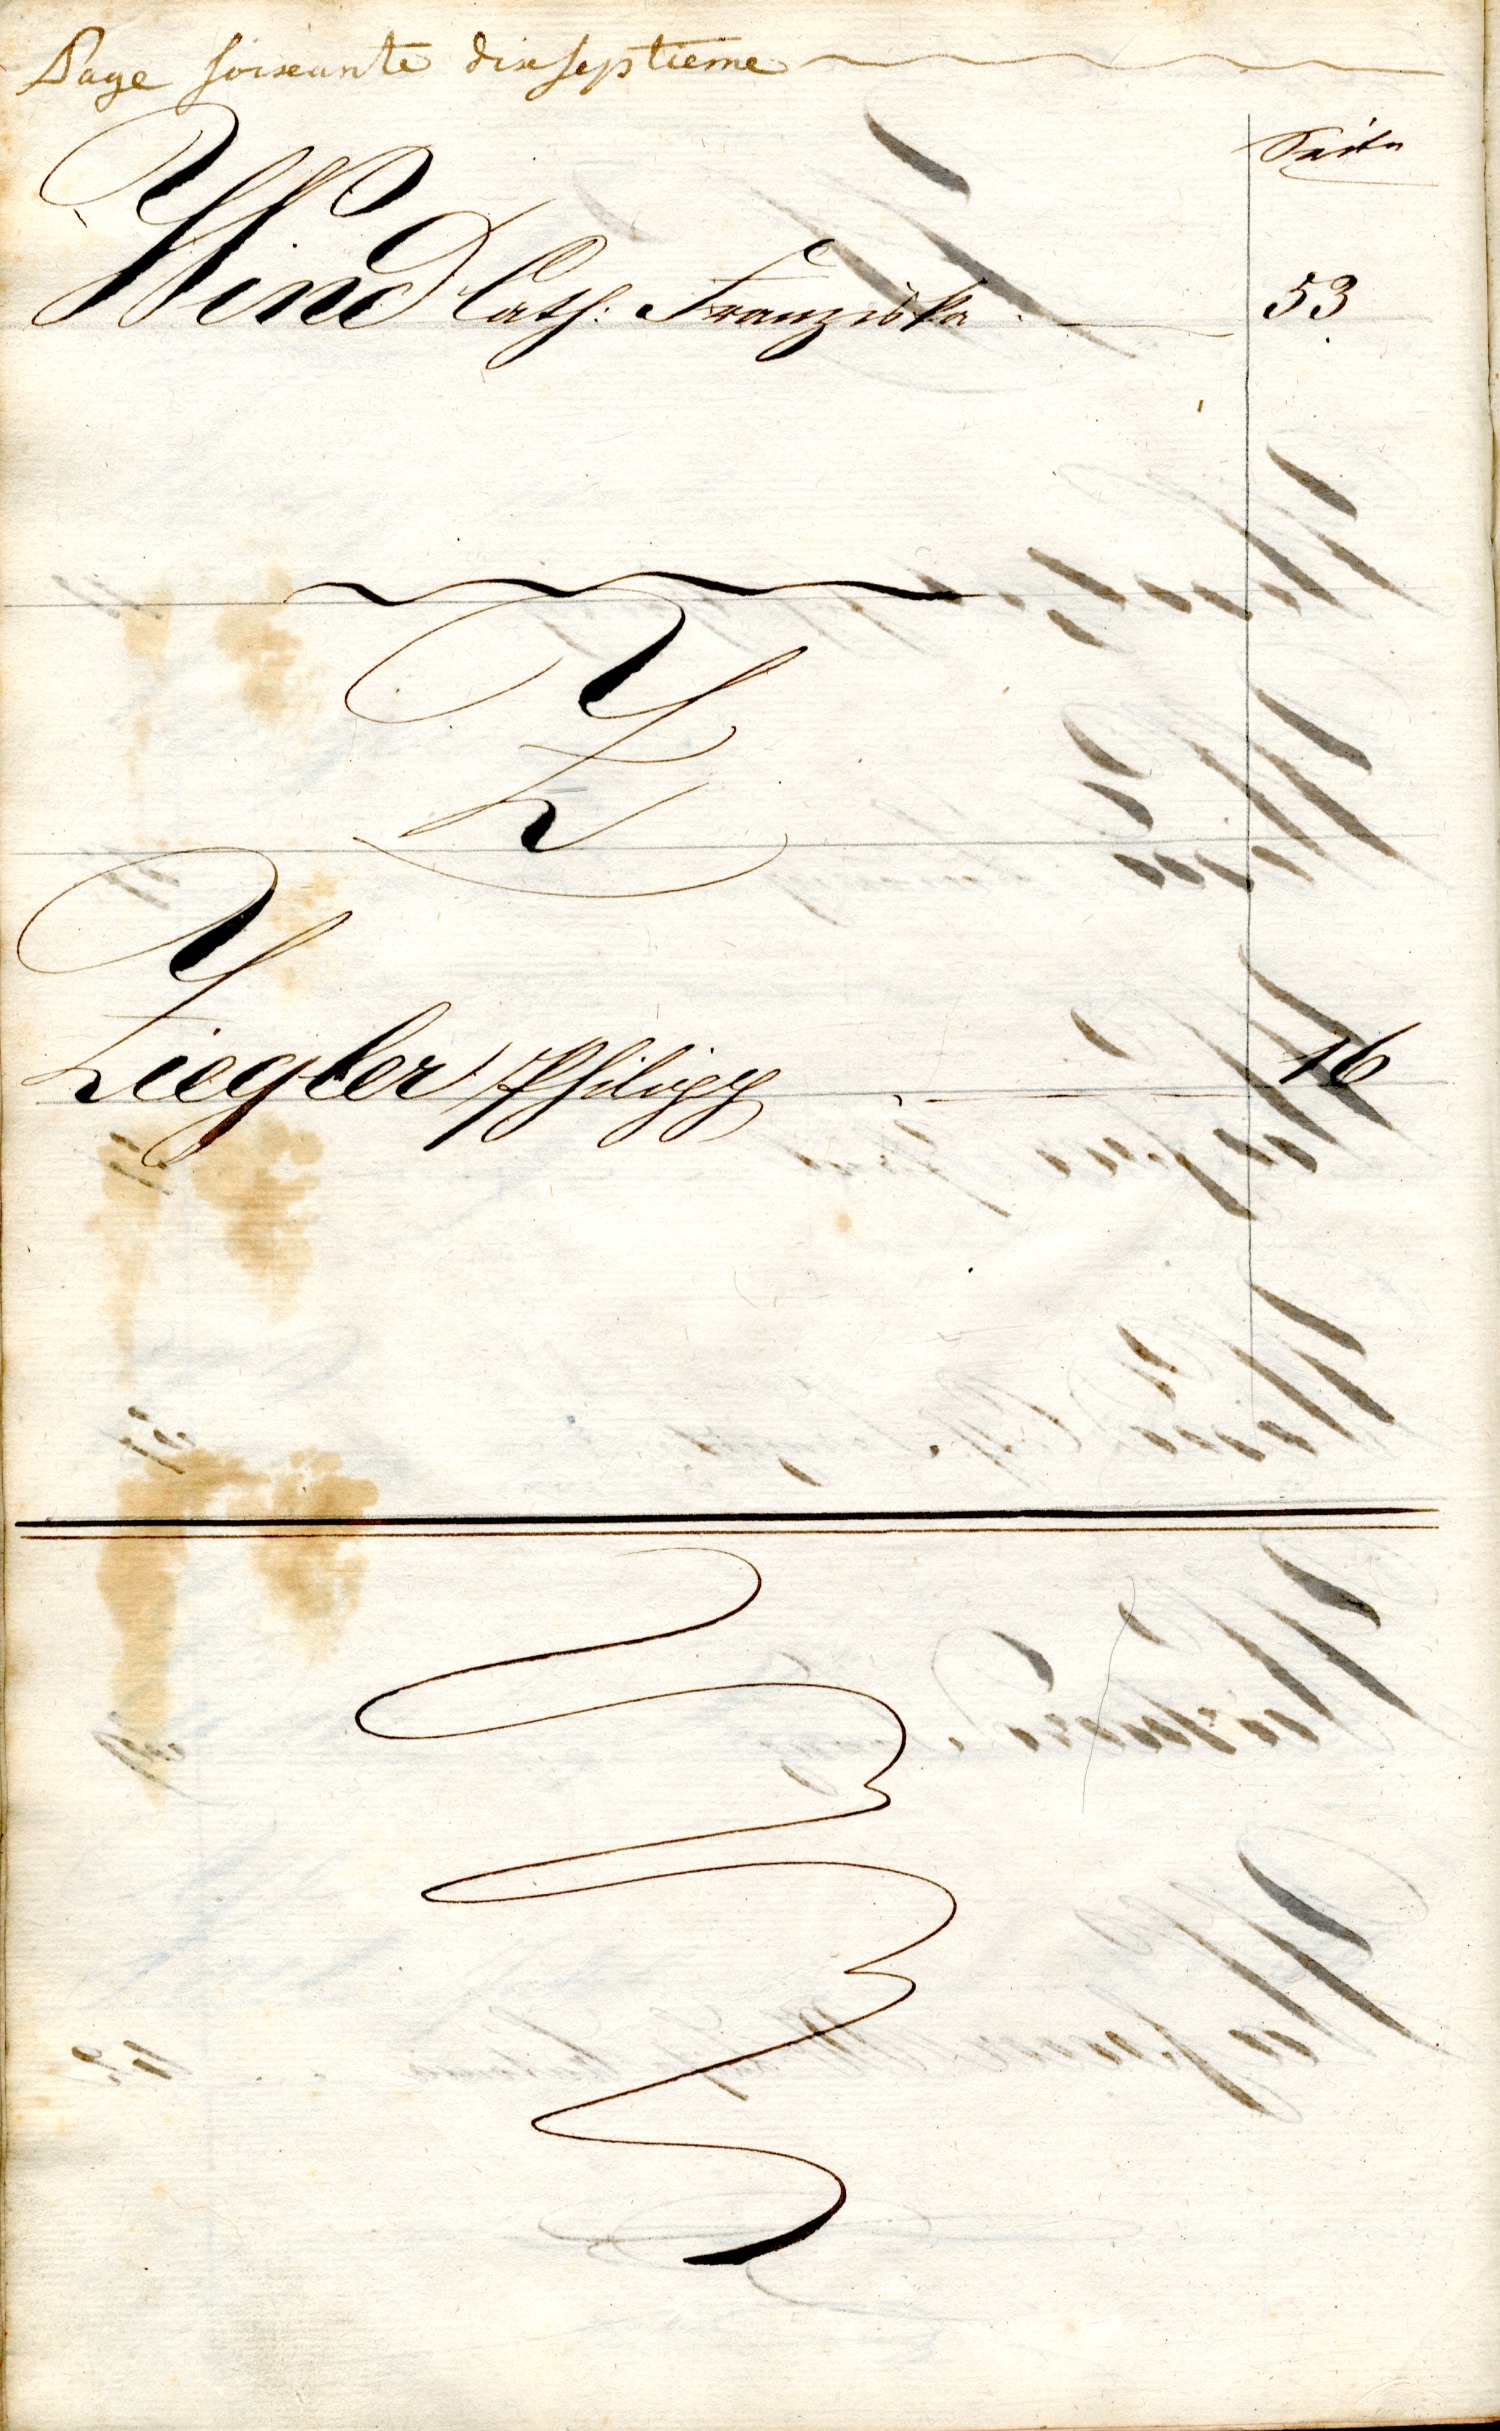 Page soixante dixseptieme
Seite
Wind Cath: Franziska 53
Z
Ziegler Philipp 16